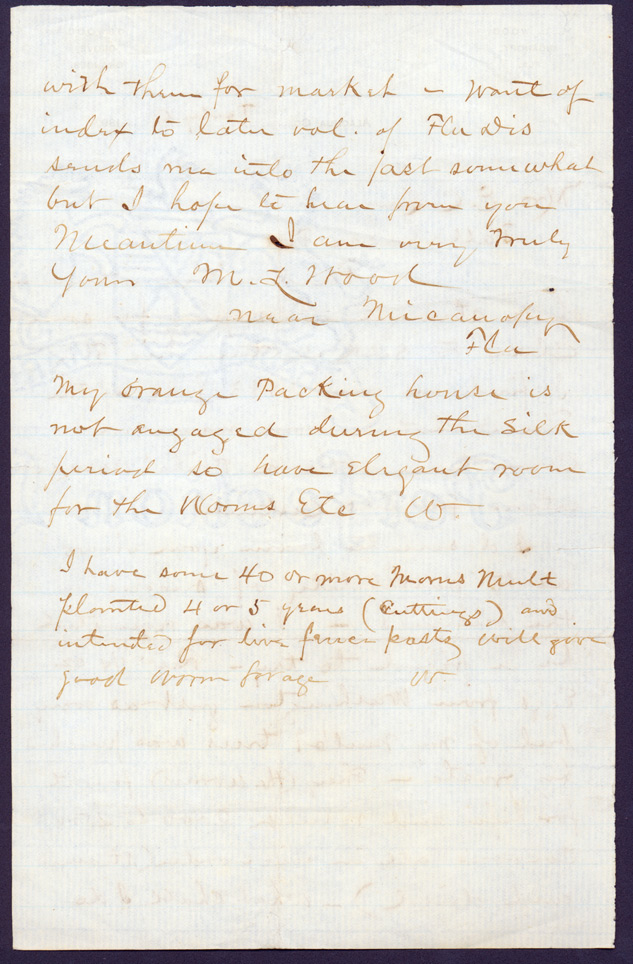 with them for market – want of
index to later vol. of Fla Dis
sends me into the past somewhat
but I hope to hear from you
Meantime I am very truly
Yours M. L. Wood
near Micanopy
Fla
My orange Packing house is
not engaged during the Silk
period so have Elegant room
for the Worms Etc W.
I have some 40 or more Morus Mult
planted 4 or 5 years (Cuttings) and
intended for live fence posts will give
good worm forage W.